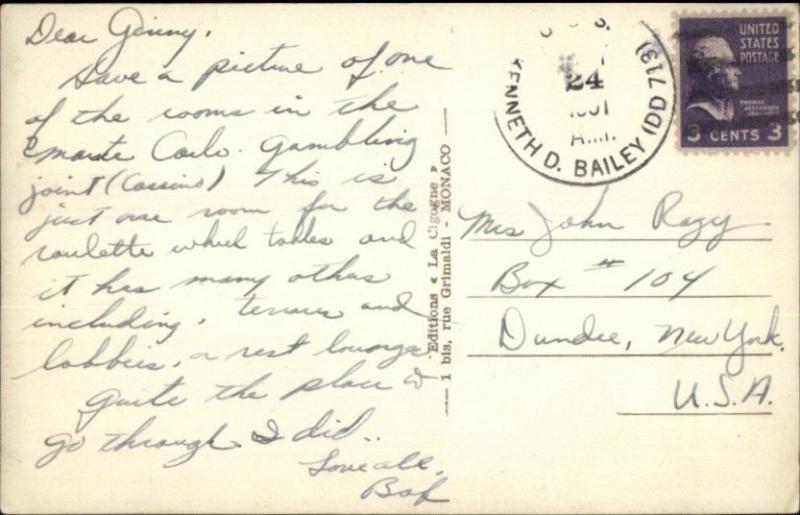 Dear Ginny,
Have a picture of one
of the rooms in the
Monte Carlo. Gambling
joint (Cassino) This is
just one room for the
roulette wheel tables and
it has many others
including, terraces and
lobbies, a rest lounge
Quite the place &
go through I did..
Love all,
Bob
Editions « La Cigogne »
1 bis, rue Grimaldi - MONACO
U.S.
24
1951
A.M.
KENNETH D. BAILEY (DD 713)
UNITED
STATES
POSTAGE
THOMAS
JEFFERSON
3 CENTS 3
Mrs John Razy
Box # 104
Dundee, New York.
U.S.A.